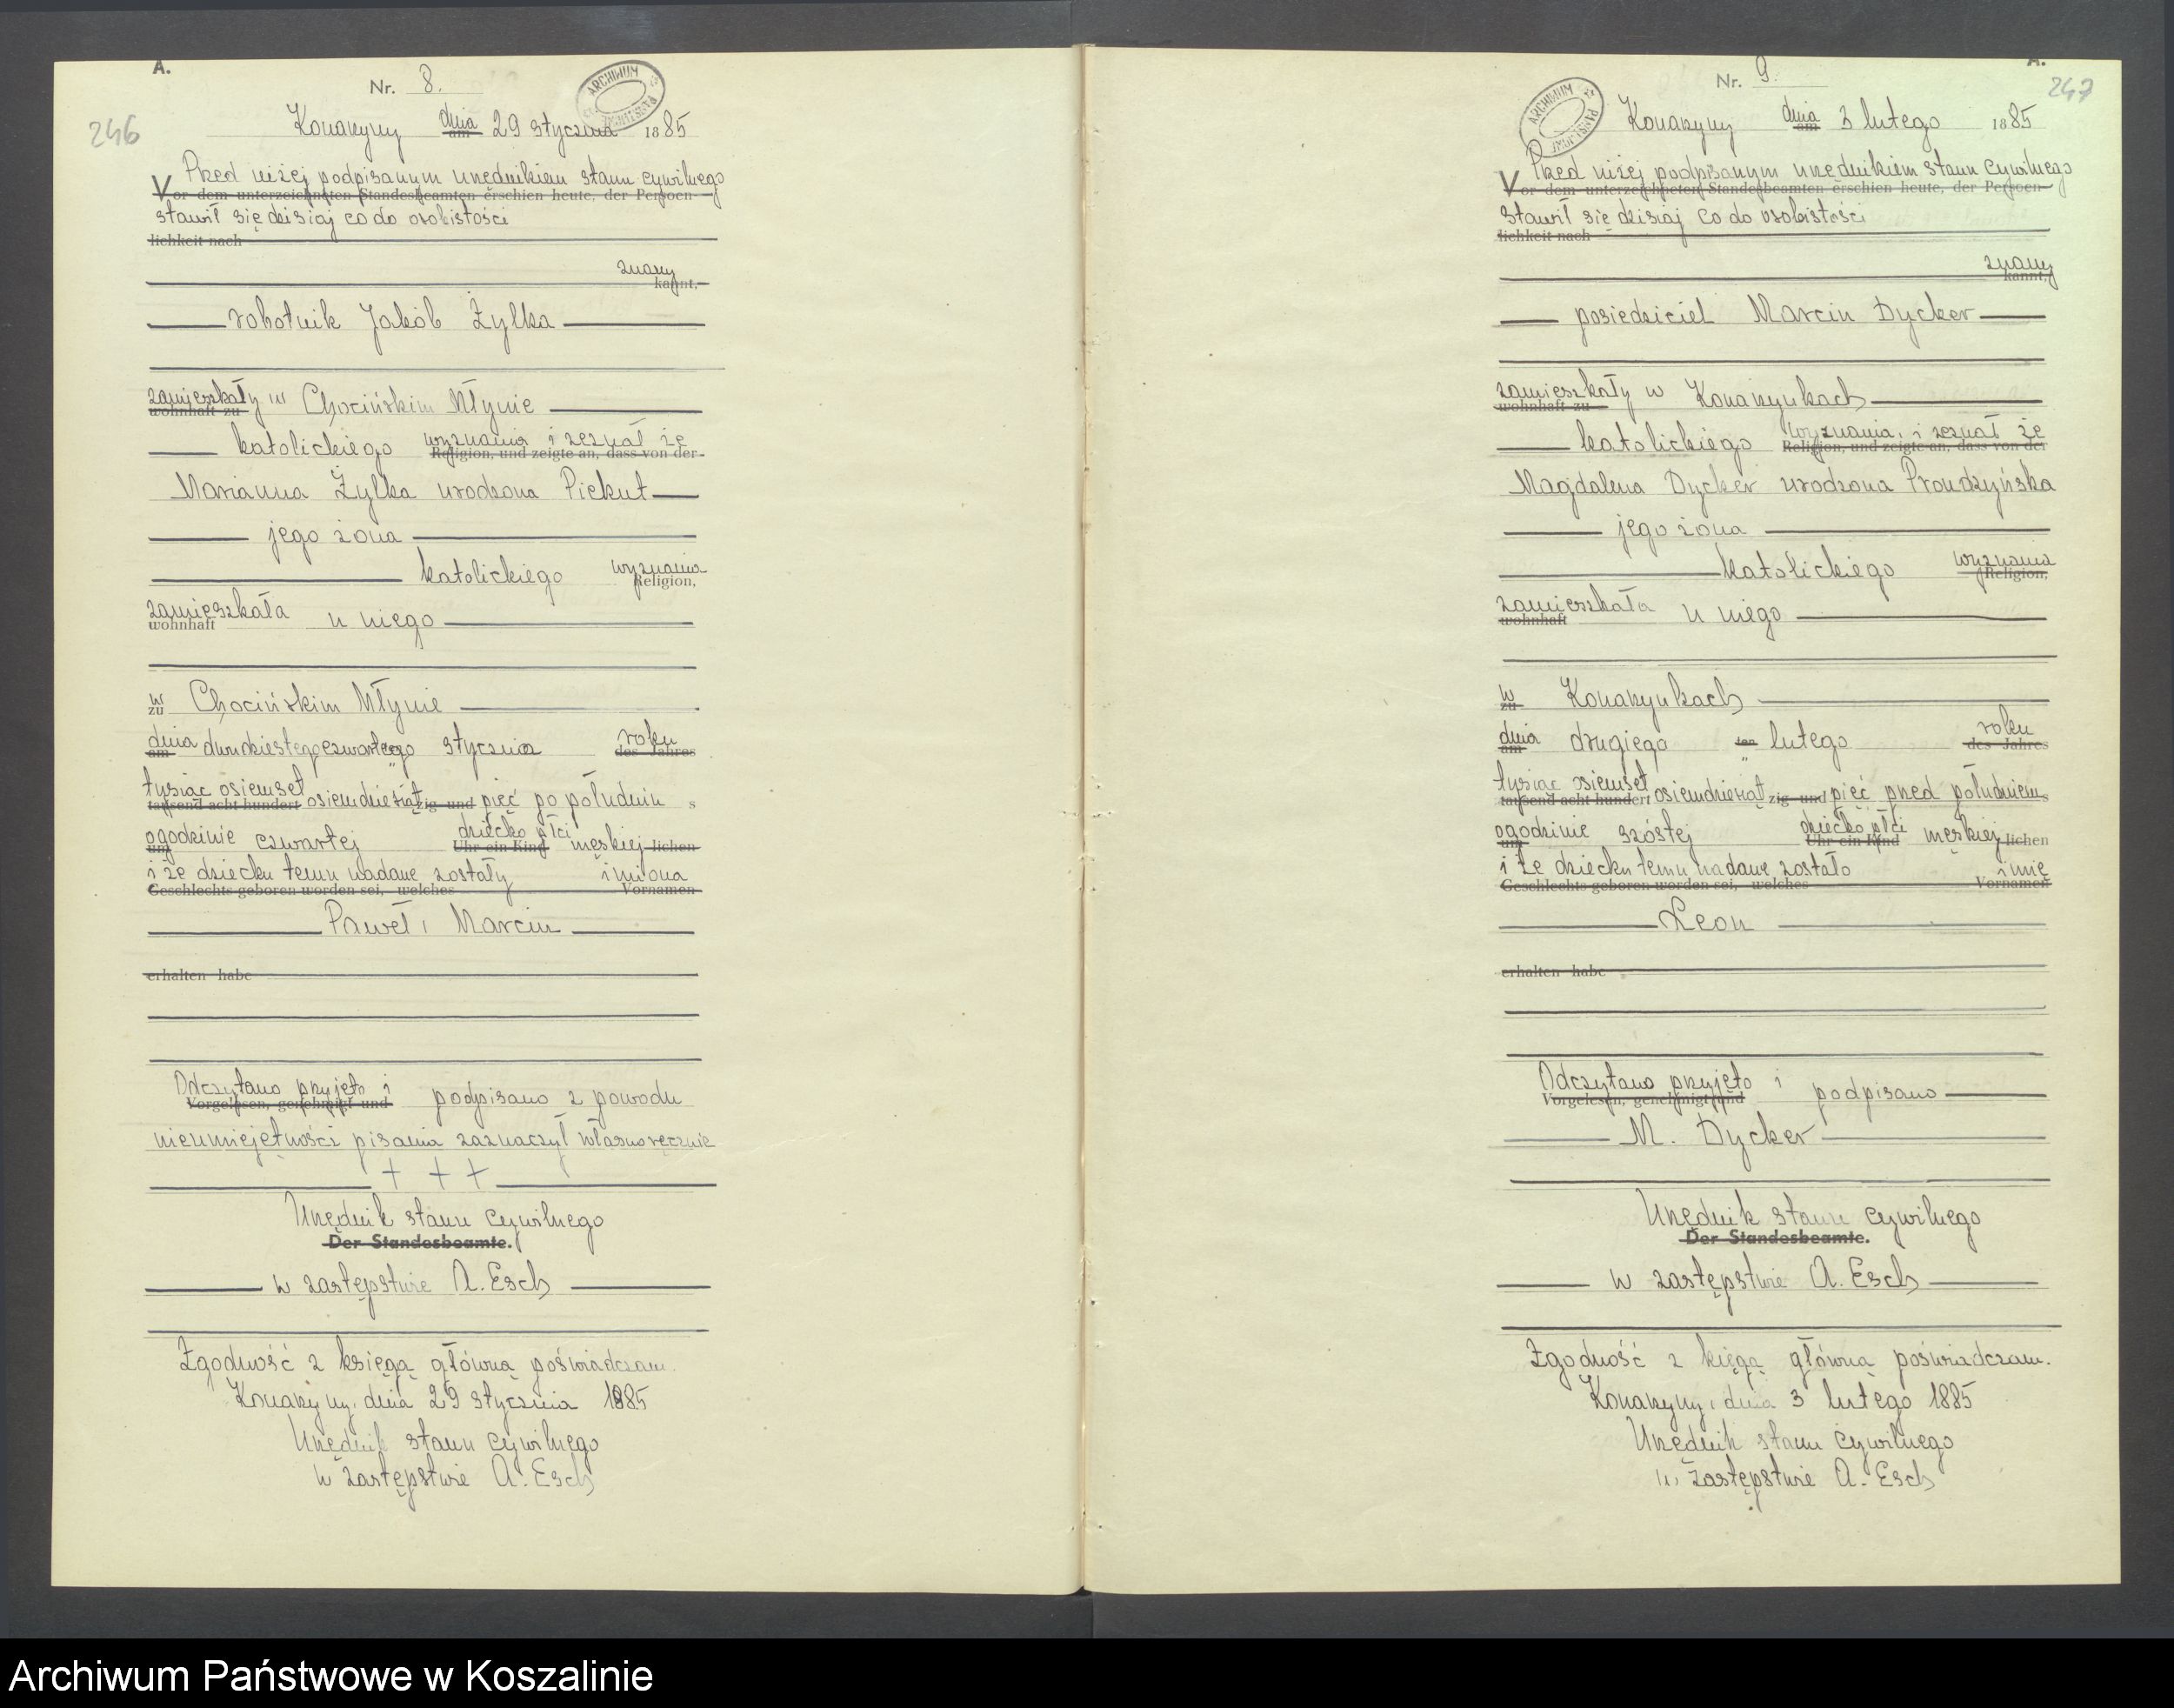 A.
Nr. 8.
ARCHIWUM
246
Konarzyny dnia am 29 stycznia 1885
Przed niżej podpisanym urzędnikiem stanu cywilnego
Vor dem unterzeichneten Standesbeamten erschien heute, der Persoen-
stawił się dzisiaj co do osobistości
lichkeit nach
znany
kannt,
robotnik Jakób Żylka
zamieszkały w Chocińskim Młynie
wohnhaft zu
katolickiego wyznania i zeznał że
Religion, und zeigte an, dass von der
Marianna Żylka urodzona Piekut
jego żona
katolickiego wyznania
Religion,
zamieszkała u niego
wohnhaft
w Chocińskim Młynie
zu
dnia dwudziestegoczwartego stycznia roku
am des Jahres
tysiąc osiemset osiemdziesiąt pięć po południu
tausend acht hundert zig und s
ogodzinie czwartej dziecko płci męskiej
um Uhr ein Kind lichen
i że dziecku temu nadane zostały imiona
Geschlechts geboren worden sei, welches Vornamen
Paweł, Marcin
erhalten habe
Odczytano przyjęto i podpisano z powodu
Vorgelesen, genehmigt und
nieumiejętności pisania zaznaczył własnoręcznie
+ + +
Urzędnik stanu cywilnego
Der Standesbeamte.
w zastępstwie A. Esch
Zgodność z księgą główną poświadczam.
Konarzyny, dnia 29 stycznia 1885
Urzędnik stanu cywilnego
w zastępstwie A. Esch
A.
Nr. 9.
ARCHIWUM
247
Konarzyny dnia am 3 lutego 1885
Przed niżej podpisanym urzędnikiem stanu cywilnego
Vor dem unterzeichneten Standesbeamten erschien heute, der Persoen-
stawił się dzisiaj co do osobistości
lichkeit nach
znany
kannt,
posiedziciel Marcin Dycker
zamieszkały w Konarzynkach
wohnhaft zu
katolickiego wyznania, i zeznał że
Religion, und zeigte an, dass von der
Magdalena Dycker urodzona Prondzyńska
jego żona
katolickiego wyznania
Religion,
zamieszkała u niego
wohnhaft
w Konarzynkach
zu
dnia drugiego ten lutego roku
am des Jahres
tysiąc osiemset osiemdziesiąt pięć przed południem
tausend acht hundert zig und s
ogodzinie szóstej dziecko płci męskiej
um Uhr ein Kind lichen
i że dziecku temu nadane zostało imię
Geschlechts geboren worden sei, welches Vornamen
Leon
erhalten habe
Odczytano przyjęto i podpisano
Vorgelesen, genehmigt und
M. Dycker
Urzędnik stanu cywilnego
Der Standesbeamte.
w zastępstwie A. Esch
Zgodność z kięgą główną poświadczam.
Konarzyny, dnia 3 lutego 1885
Urzędnik stanu cywilnego
w zastępstwie A. Esch
Archiwum Państwowe w Koszalinie